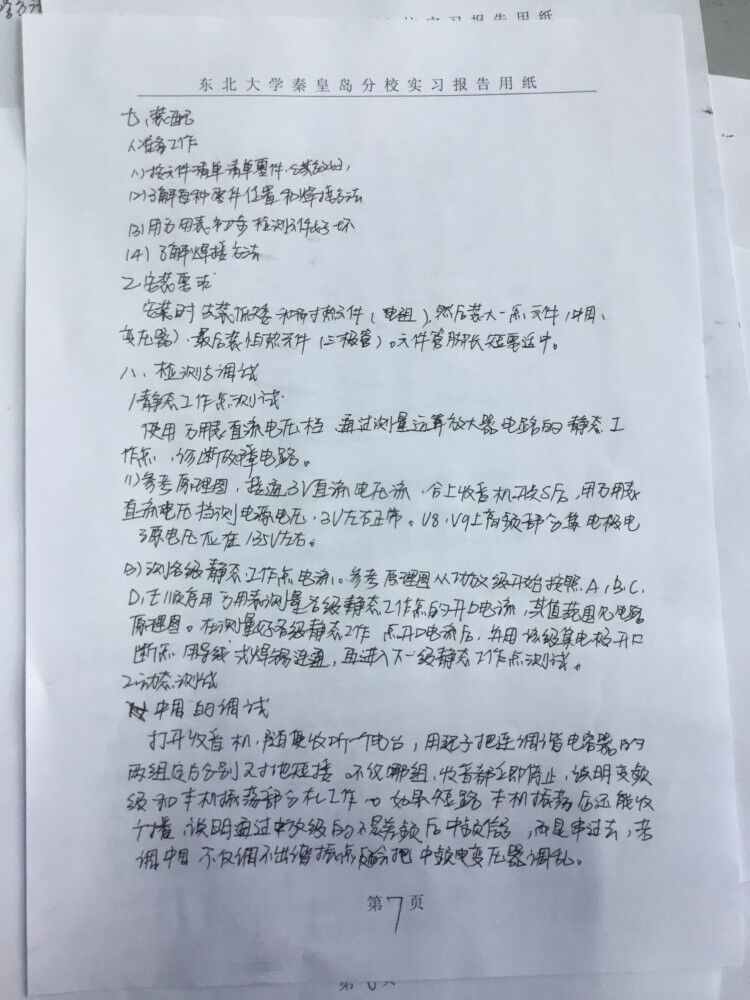 东北大学秦皇岛分校实习报告用纸
七、装配
1、准备工作
(1)按文件清单清单零件,分类放好,
(2)了解每种零件位置和焊接方法
(3)用万用表初步检测文件好坏
(4)了解焊接方法
2、安装要求
安装时 安装 和 文件(电阻),然后装大一点文件(中周、
变压器),最后装怕热元件(三极管)。元件管脚长短要适中。
八、检测与调试
1、静态工作点测试
使用万用表直流电压档 通过测量运算放大器电路的静态工
作点,诊断故障电路。
(1)参考原理图,接通3V直流电压流,合上收音机开关S后,用万用表
直流电压档测电源电压,3V左右正常。V8,V9上高频部分集电极电
源电压应在1.35V左右。
(2)测各级静态工作点电流。参考原理图从功放级开始按照A、B、C、
D、E顺序用万用表测量各级静态工作点的开口电流,其值范围见电路
原理图。在测量好各级静态工作点开口电流后,并用该级集电极开口
断点用导线或焊锡连通,再进入下一级静态工作点测试。
2、动态测试
中周的调试
打开收音机,随便收听一个电台,用起子把连调谐电容器的
两组定片分别对地短接 不仅哪组,收音都立即停止,说明变频
级和本机振荡部分 工作。如果短路本机振荡后还能收
广播,说明通过中放级的不是差频后中频信号,而是串过去,若
调中周不仅调不出谐振点反会把中频电变压器调乱。
第7页